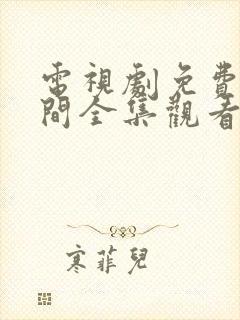 電視劇免費
間全集觀看
寒菲兒